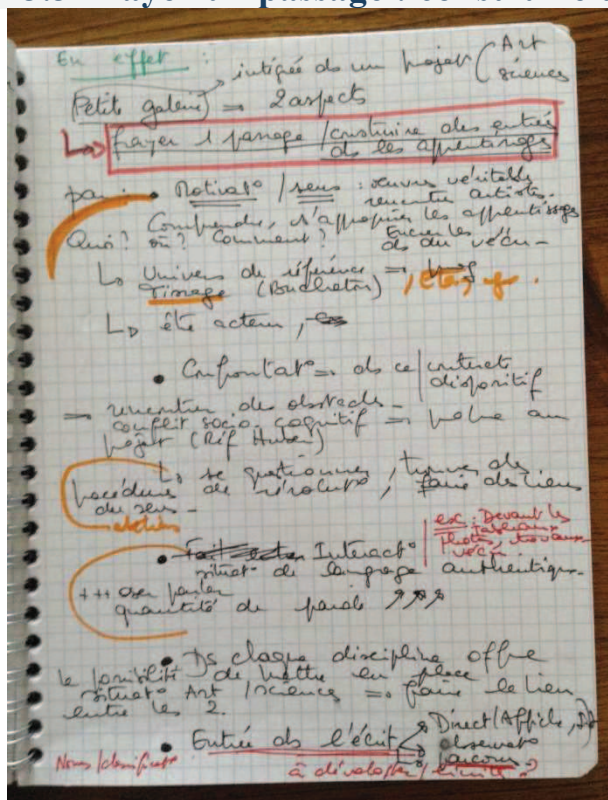 En effet :
intégrée ds un projet (Art
sciences
(Petite galerie) => 2 aspects
↳ frayer 1 passage / construire des entrées
ds les apprentissages
par : • Motivat° / sens : œuvres véritables
rencontre artistes.
Comprendre, s'approprier les apprentissages
Quoi ? où ? Comment ? Ancrer les
ds du vécu -
↳ Univers de référence =>
Tissage (Bucheton)
↳ être acteur,
• Confrontat° => ds ce contexte
dispositif
=> rencontrer des obstacles -
conflit socio-cognitif =>
projet (Réf Huber)
↳ se questionner, trouver des
procédures de résolut°, faire des liens
du sens -
• Interact°
situat° de langage authentique.
ex : Devant les
tableaux
photos, travaux
vécu.
+++ oser parler
quantité de parole ↗↗↗
• Ds chaque discipline offre
la possibilité de mettre en place
situat° Art / sciences => faire le lien
entre les 2.
• Entrée ds l'écrit
Direct (Affiche,
observat°
parcours
à développer / limite ?